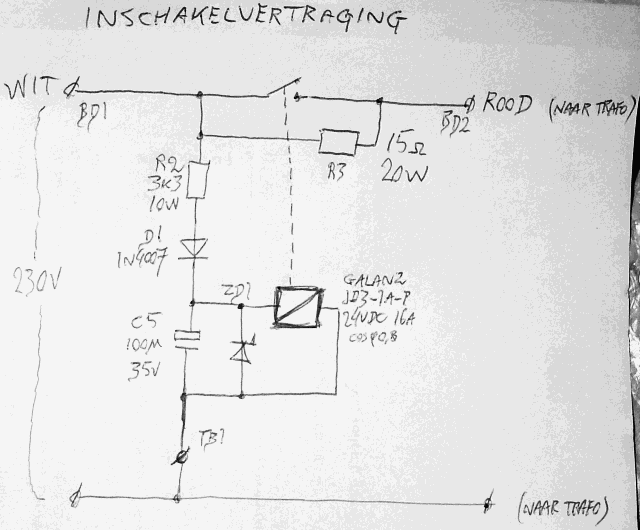 INSCHAKELVERTRAGING
WIT
BD1
BD2
ROOD (NAAR TRAFO)
R3
15Ω
20W
R2
3K3
10W
D1
1N4007
230V
ZD1
GALANZ
JD3-1A-P
24VDC 16A
COSφ0,8
C5
100M
35V
TB1
(NAAR TRAFO)